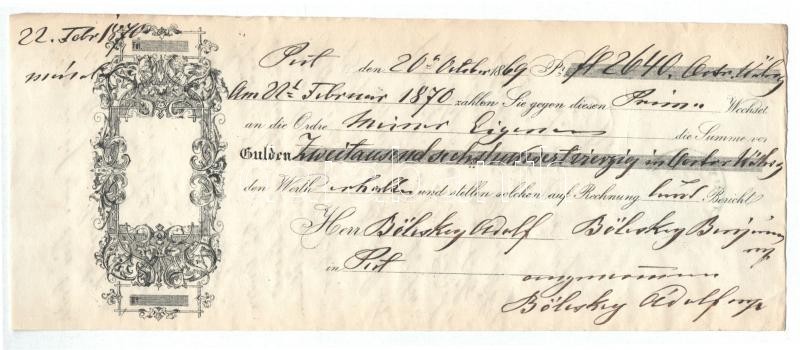 22. Febr 1870
Pest den 20t October 1869 Pr. fl 2640. Oestr. Währg
Am 22t Februar 1870 zahlen Sie gegen diesen Prima Wechsel
an die Ordre Meiner Eigenen die Summe von
Gulden Zweitausendsechshundertvierzig in Oester Währg
den Werth erhalten und stellen solchen auf Rechnung laut Bericht
Herr Böhskey Adolf Böhskey Benjamin mp
in Pest angenommen
Böhskey Adolf mp